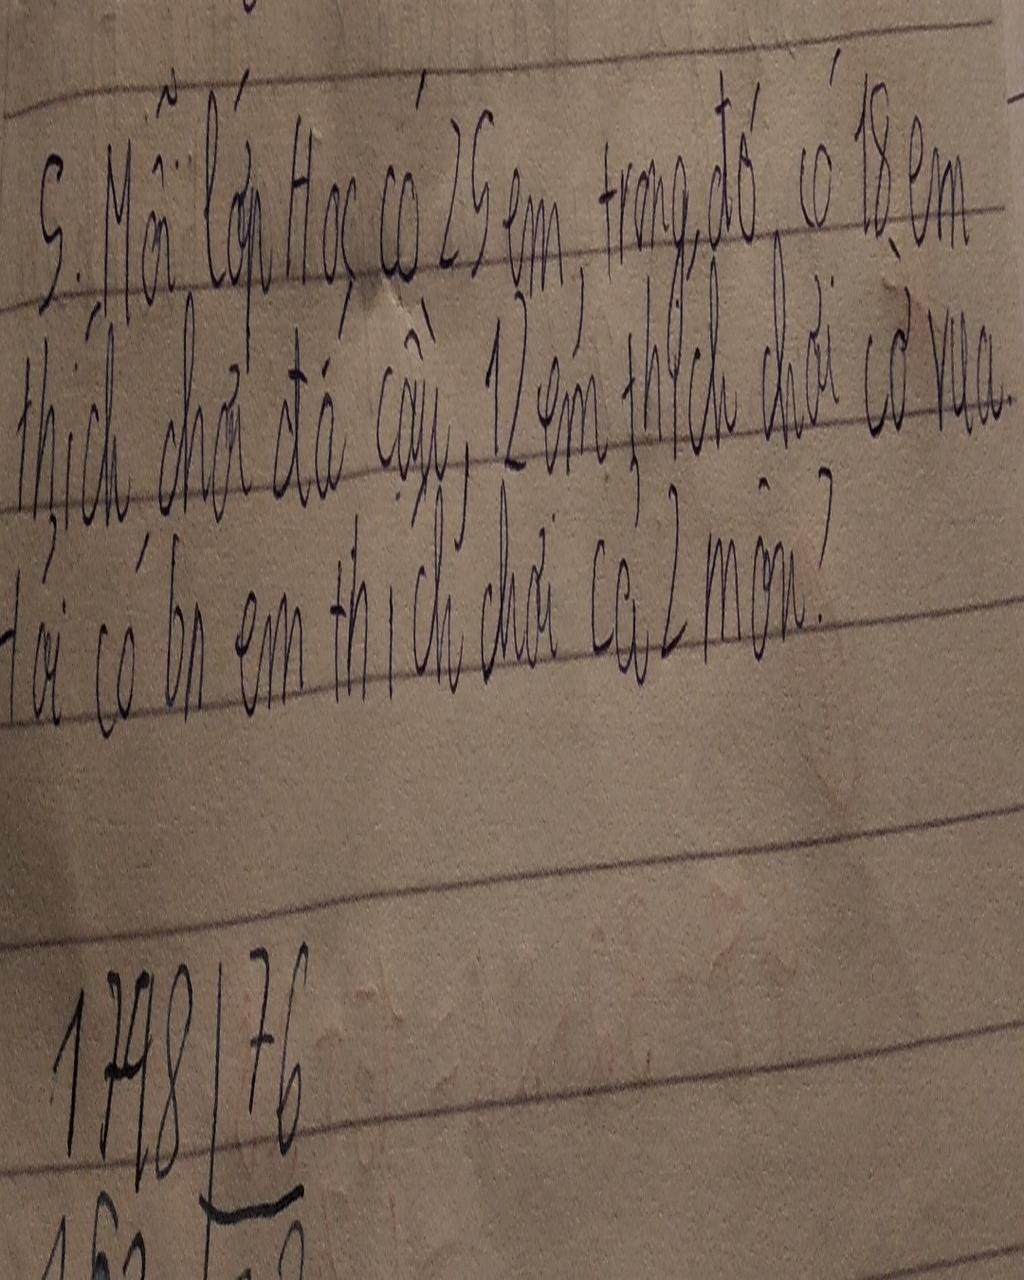 5. Mỗi lớp Học có 25 em, trong đó có 18 em
thích chơi đá cầu, 12 em thích chơi cờ vua.
Hỏi có bn em thích chơi cả 2 môn?
1798 76
152